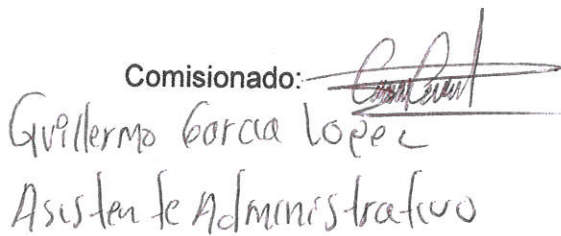 Comisionado:
Guillermo Garcia Lopez
Asistente Administrativo